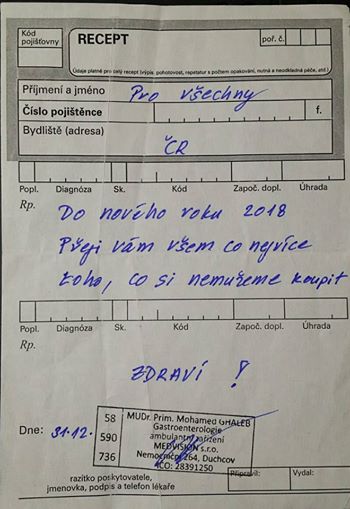 Kód
pojišťovny
RECEPT
poř. č.
Údaje platné pro celý recept (výpis, pohotovost, repetatur s počtem opakování, nutná a neodkladná péče, atd.)
Příjmení a jméno Pro všechny
Číslo pojištěnce f.
Bydliště (adresa)
ČR
Popl. Diagnóza Sk. Kód Započ. dopl. Úhrada
Rp.
Do nového roku 2018
Přeji vám všem co nejvíce
toho, co si nemužeme koupit
Popl. Diagnóza Sk. Kód Započ. dopl. Úhrada
Rp.
ZDRAVÍ !
58 MUDr. Prim. Mohamed GHALEB
Gastroenterologie
Dne: 31.12. 590 ambulantní zařízení
MEDVISION s.r.o.
736 Nemocniční 264, Duchcov
IČO: 28391250
Připravil: Vydal:
razítko poskytovatele,
jmenovka, podpis a telefon lékaře